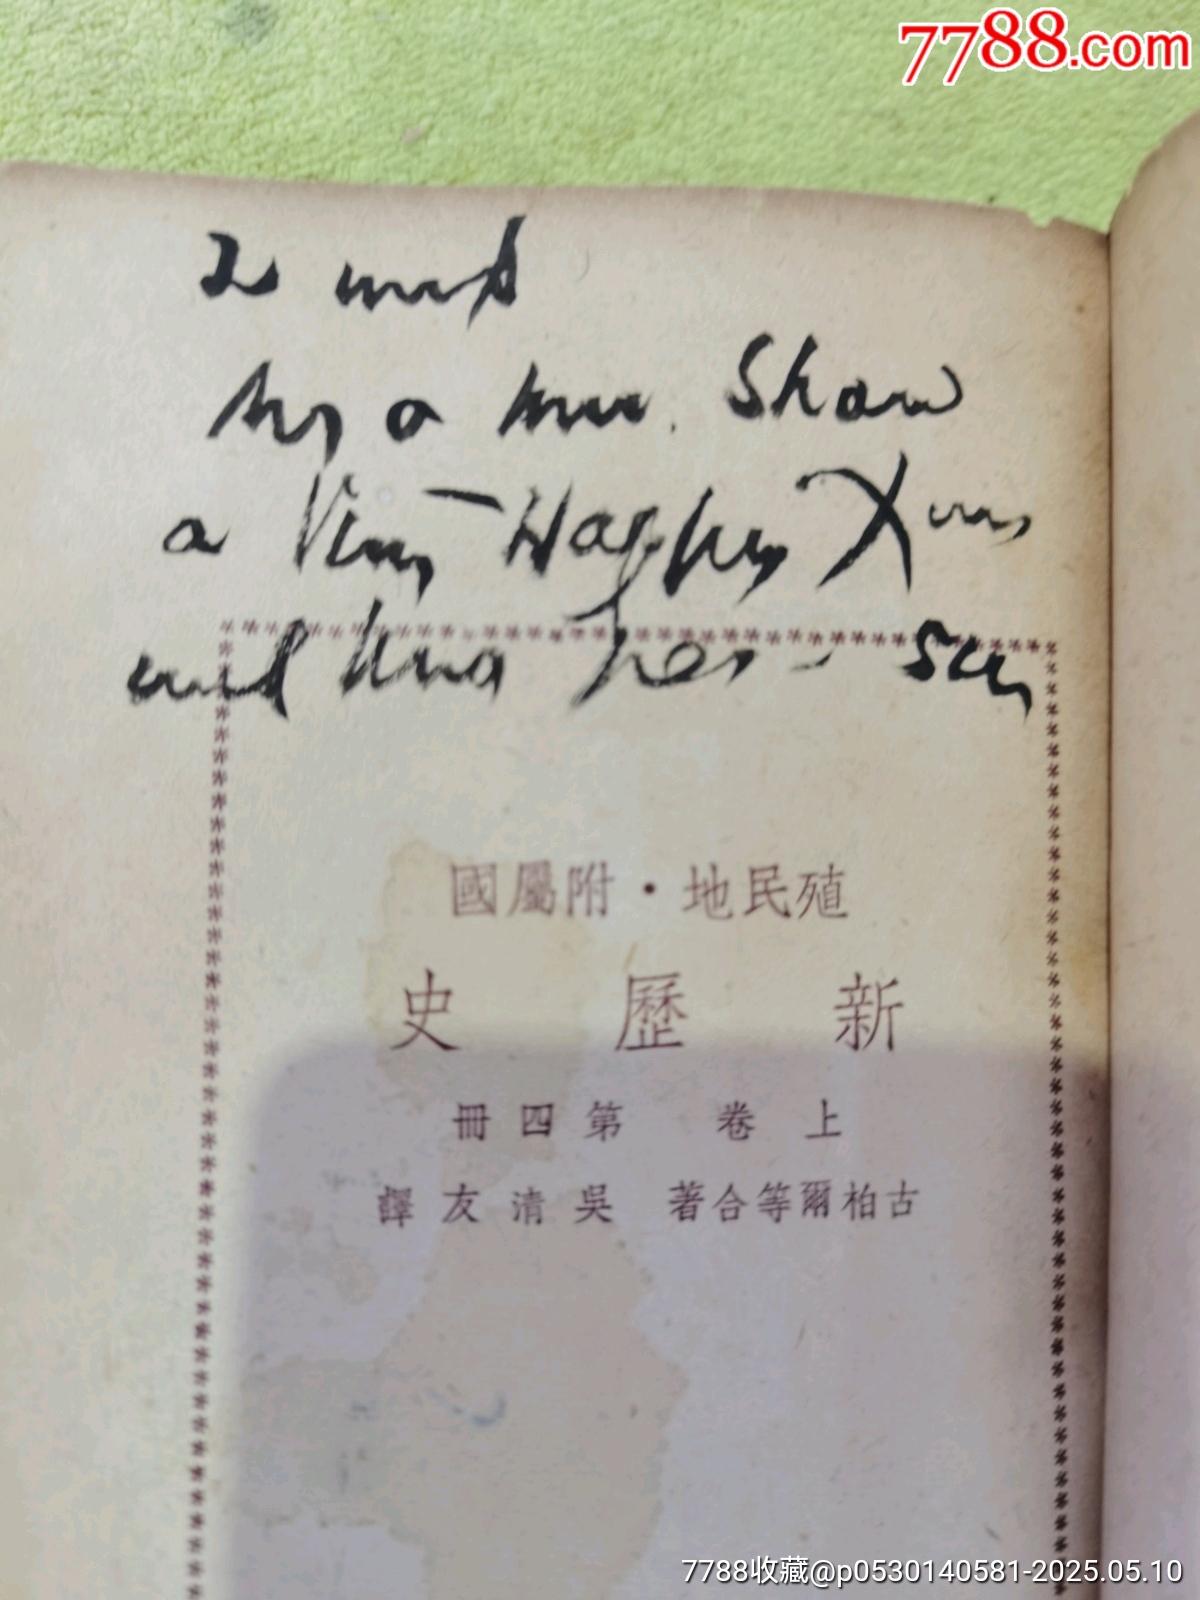 7788.com
I wish
Mr. Shaw
a Very Happy Xmas
and
國屬附・地民殖
史歷新
冊四第 卷上
譯友清吳 著合等爾柏古
7788收藏@p0530140581-2025.05.10